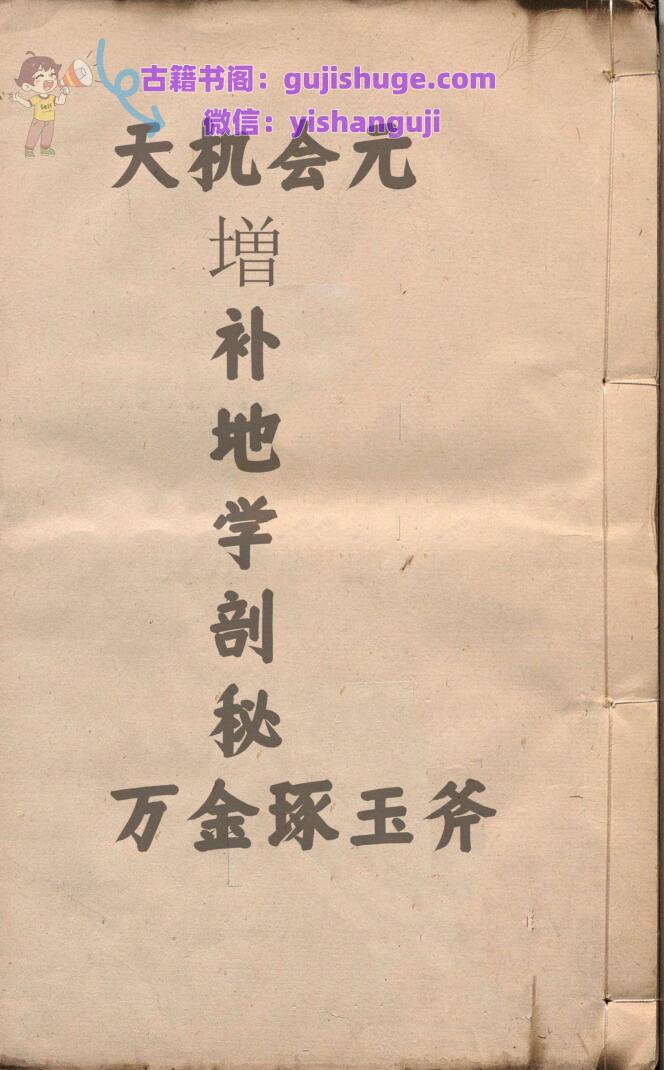 古籍书阁：gujishuge.com
微信：yishanguji
天机会元
增
补
地
学
剖
秘
万金琢玉斧
Sell